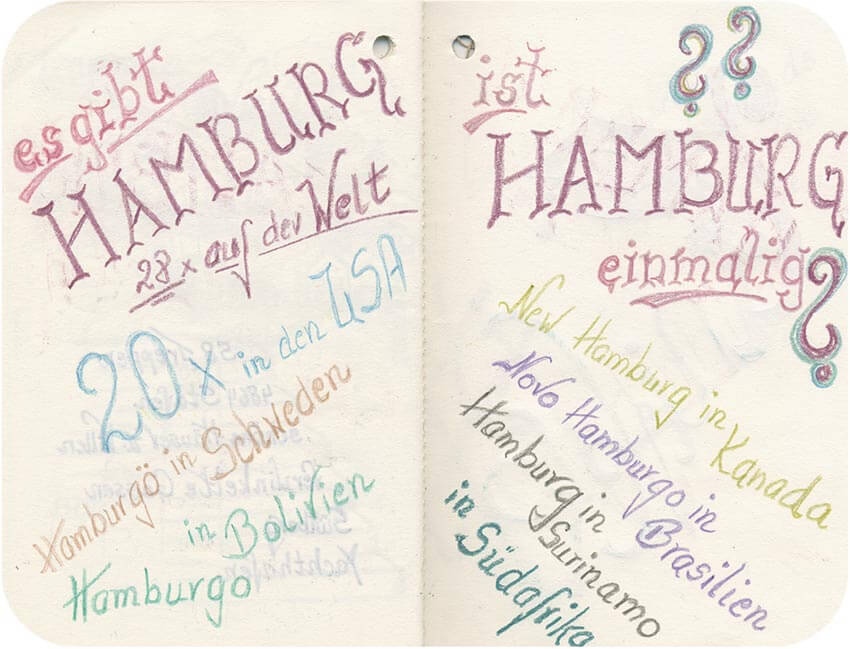 es gibt
HAMBURG
28 x auf der Welt
20 x in den USA
Hamburgö in Schweden
Hamburgo
in Bolivien
ist
??
HAMBURG
einmalig?
New Hamburg in
Kanada
Novo Hamburgo in
Brasilien
Hamburg in
Surinamo
in Südafrika